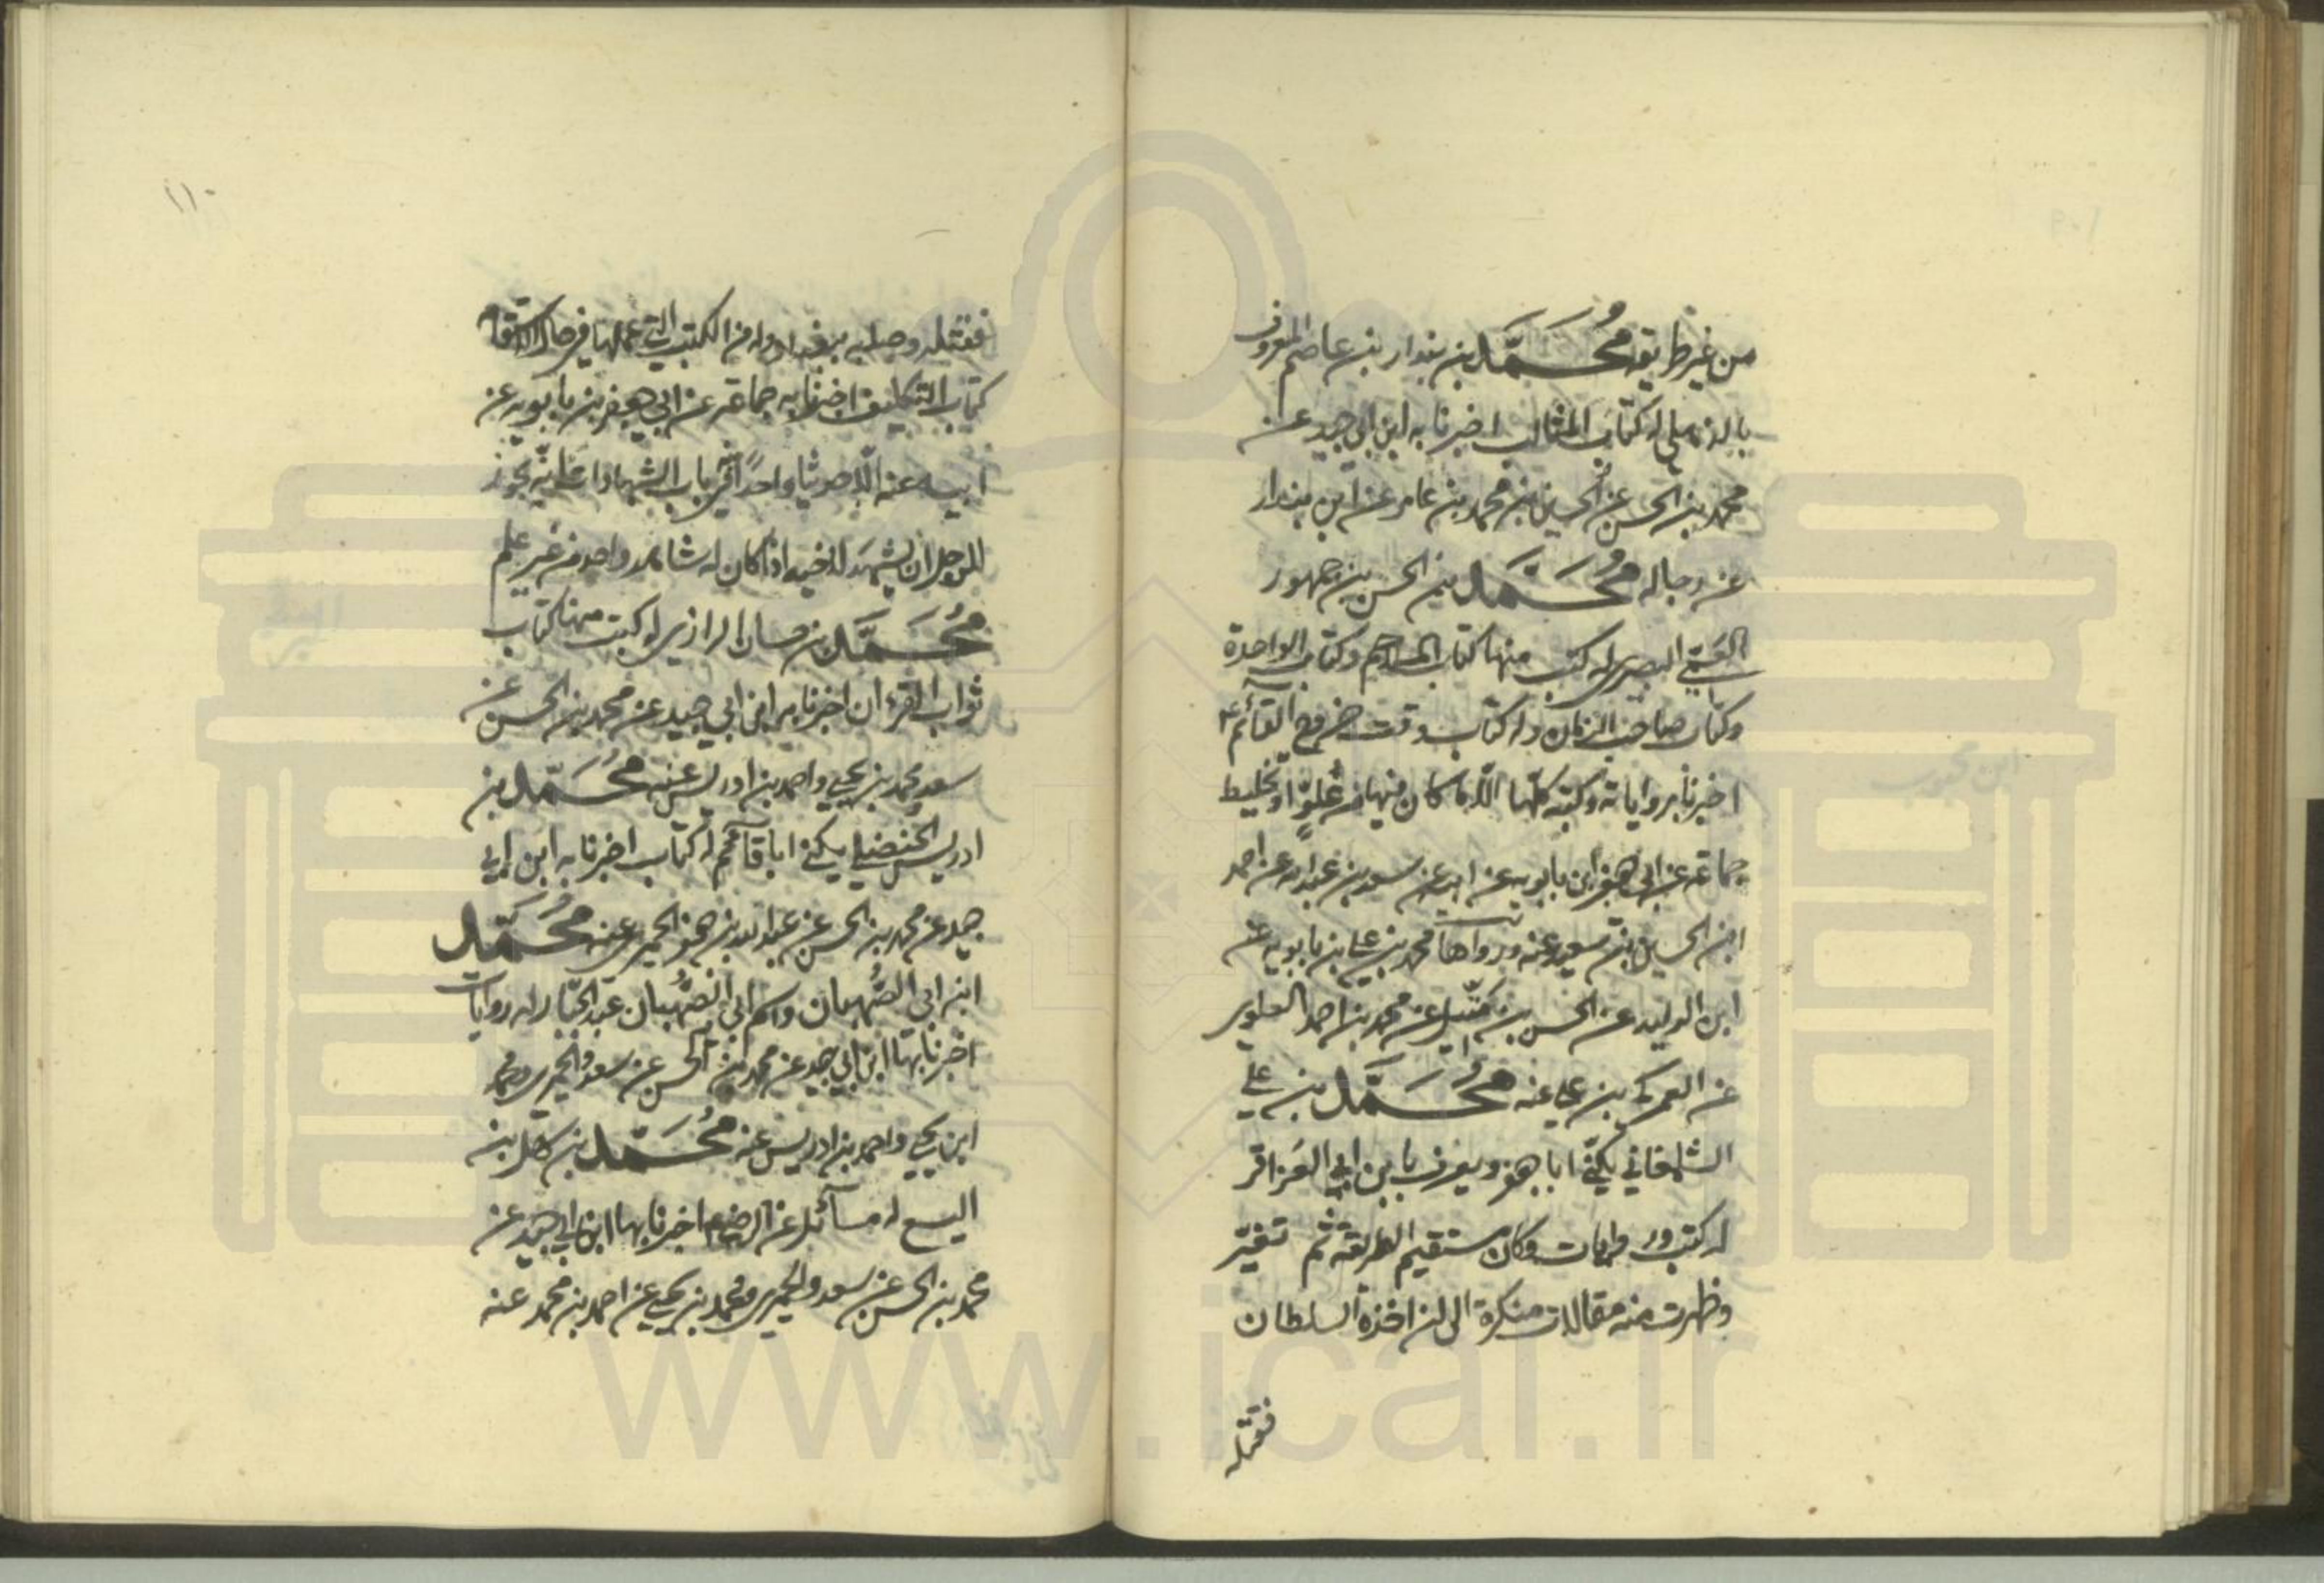 من غير طريقه محمد بن بندار بن عاصم المعروف
بالذهلي له كتاب المثالب اخبرنا به ابن ابي جيد عن
محمد بن الحسن عن الحسين بن محمد بن عامر عن ابن بندار
عن رجاله محمد بن الحسن بن جمهور
العمي البصري له كتب منها كتاب الملاحم وكتاب الواحدة
وكتاب صاحب الزمان وله كتاب وقت خروج القائم ع
اخبرنا برواياته وكتبه كلها الا ما كان فيها من غلو او تخليط
جماعة عن ابي جعفر ابن بابويه عن ابيه عن سعد بن عبد الله عن احمد
ابن الحسين بن سعيد عنه ورواها محمد بن علي بن بابويه عن
ابن الوليد عن الحسن بن متيل عن محمد بن احمد العلوي
عن العمركي بن علي عنه محمد بن علي
الشلمغاني يكنى ابا جعفر ويعرف بابن ابي العزاقر
له كتب وروايات وكان مستقيم الطريقة ثم تغير
وظهرت منه مقالات منكرة الى ان اخذه السلطان
فقتله
١١٠
فقتله وصلبه ببغداد وله من الكتب التي عملها في حال الاستقامة
كتاب التكليف اخبرنا به جماعة عن ابي جعفر بن بابويه عن
ابيه عنه الا حديثا واحدا في باب الشهادات انه يجوز
للرجل ان يشهد لاخيه اذا كان له شاهد واحد من غير علم
محمد بن حسان الرازي له كتب منها كتاب
ثواب القرءان اخبرنا به ابن ابي جيد عن محمد بن الحسن عن
سعد ومحمد بن يحيى واحمد بن ادريس عنه محمد بن
ادريس الحنضلي يكنى ابا حاتم له كتاب اخبرنا به ابن ابي
جيد عن محمد بن الحسن عن عبد الله بن جعفر الحميري عنه محمد
ابن ابي الصهبان واسم ابي الصهبان عبد الجبار له روايات
اخبرنا بها ابن ابي جيد عن محمد بن الحسن عن سعد والحميري ومحمد
ابن يحيى واحمد بن ادريس عنه محمد بن سهل بن
اليسع له مسائل عن الرضا ع اخبرنا بها ابن ابي جيد عن
محمد بن الحسن عن سعد والحميري ومحمد بن يحيى عن احمد بن محمد عنه
www.ical.ir